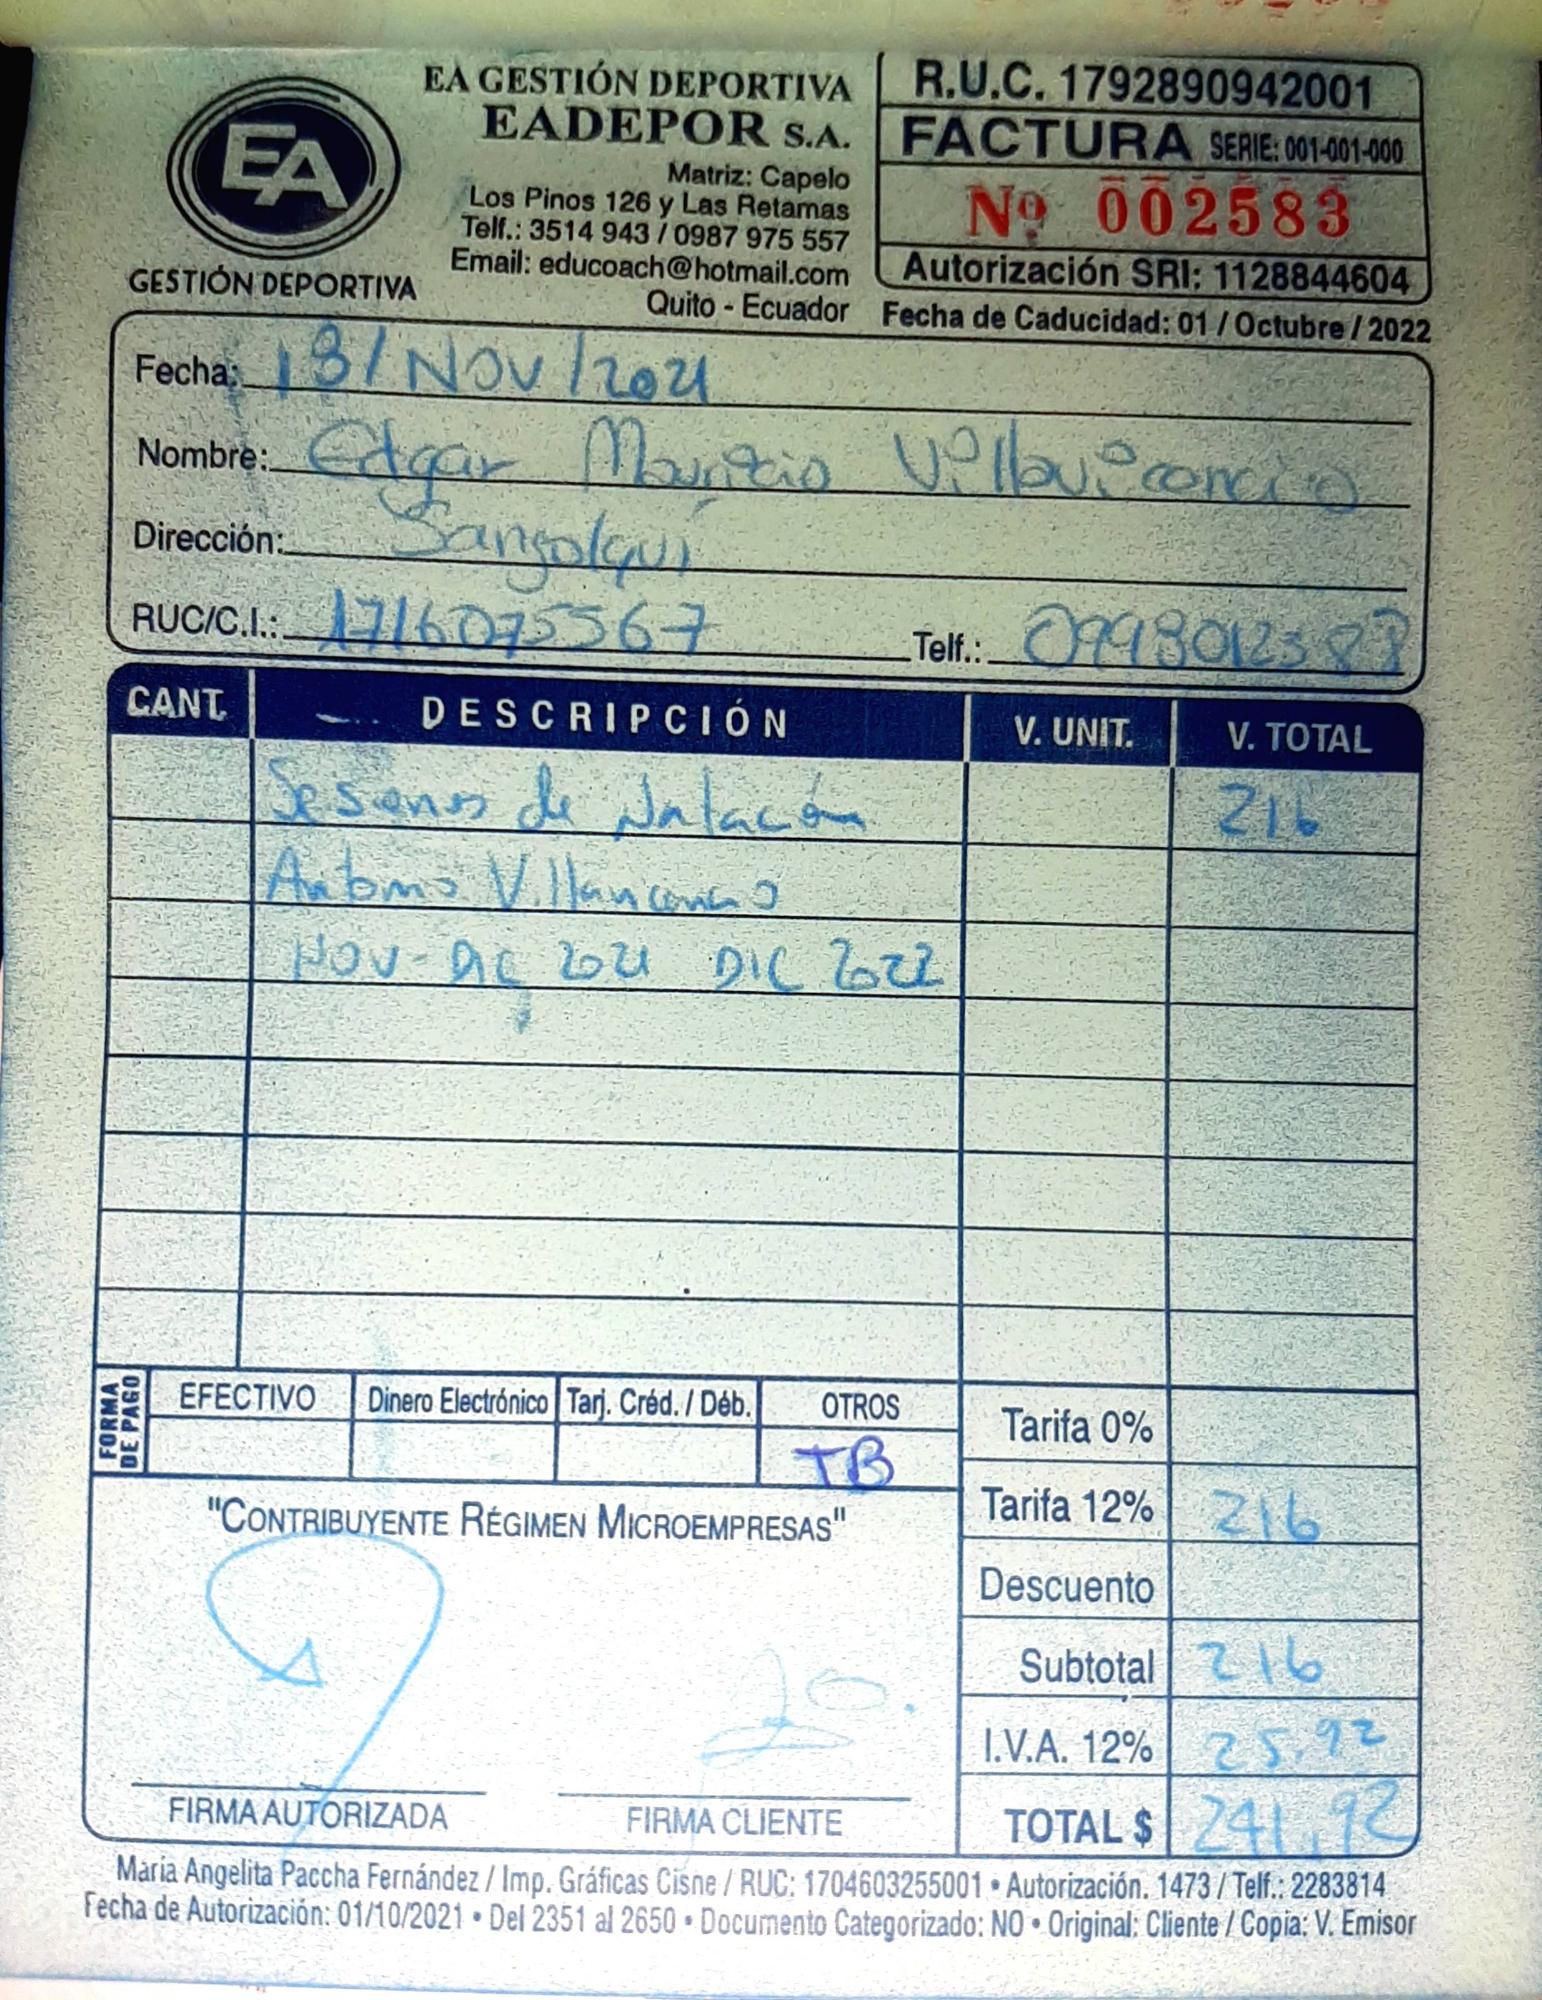 EA
GESTIÓN DEPORTIVA
EA GESTIÓN DEPORTIVA
EADEPOR S.A.
Matriz: Capelo
Los Pinos 126 y Las Retamas
Telf.: 3514 943 / 0987 975 557
Email: educoach@hotmail.com
Quito - Ecuador
R.U.C. 1792890942001
FACTURA SERIE: 001-001-000
Nº 002583
Autorización SRI: 1128844604
Fecha de Caducidad: 01 / Octubre / 2022
Fecha: 13/NOV/2021
Nombre: Edgar Mauricio Villavicencio
Dirección: Sangolquí
RUC/C.I.: 1716075567 Telf.:
CANT. DESCRIPCIÓN V. UNIT. V. TOTAL
Sesiones de Natación 216
Antonio Villavicencio
NOV-DIC 2021 DIC 2022
FORMA DE PAGO
EFECTIVO Dinero Electrónico Tarj. Créd. / Déb. OTROS
TB
Tarifa 0%
Tarifa 12% 216
Descuento
Subtotal 216
I.V.A. 12% 25,92
TOTAL $ 241,92
"CONTRIBUYENTE RÉGIMEN MICROEMPRESAS"
FIRMA AUTORIZADA FIRMA CLIENTE
Maria Angelita Paccha Fernández / Imp. Gráficas Cisne / RUC: 1704603255001 • Autorización. 1473 / Telf.: 2283814
Fecha de Autorización: 01/10/2021 • Del 2351 al 2650 • Documento Categorizado: NO • Original: Cliente / Copia: V. Emisor